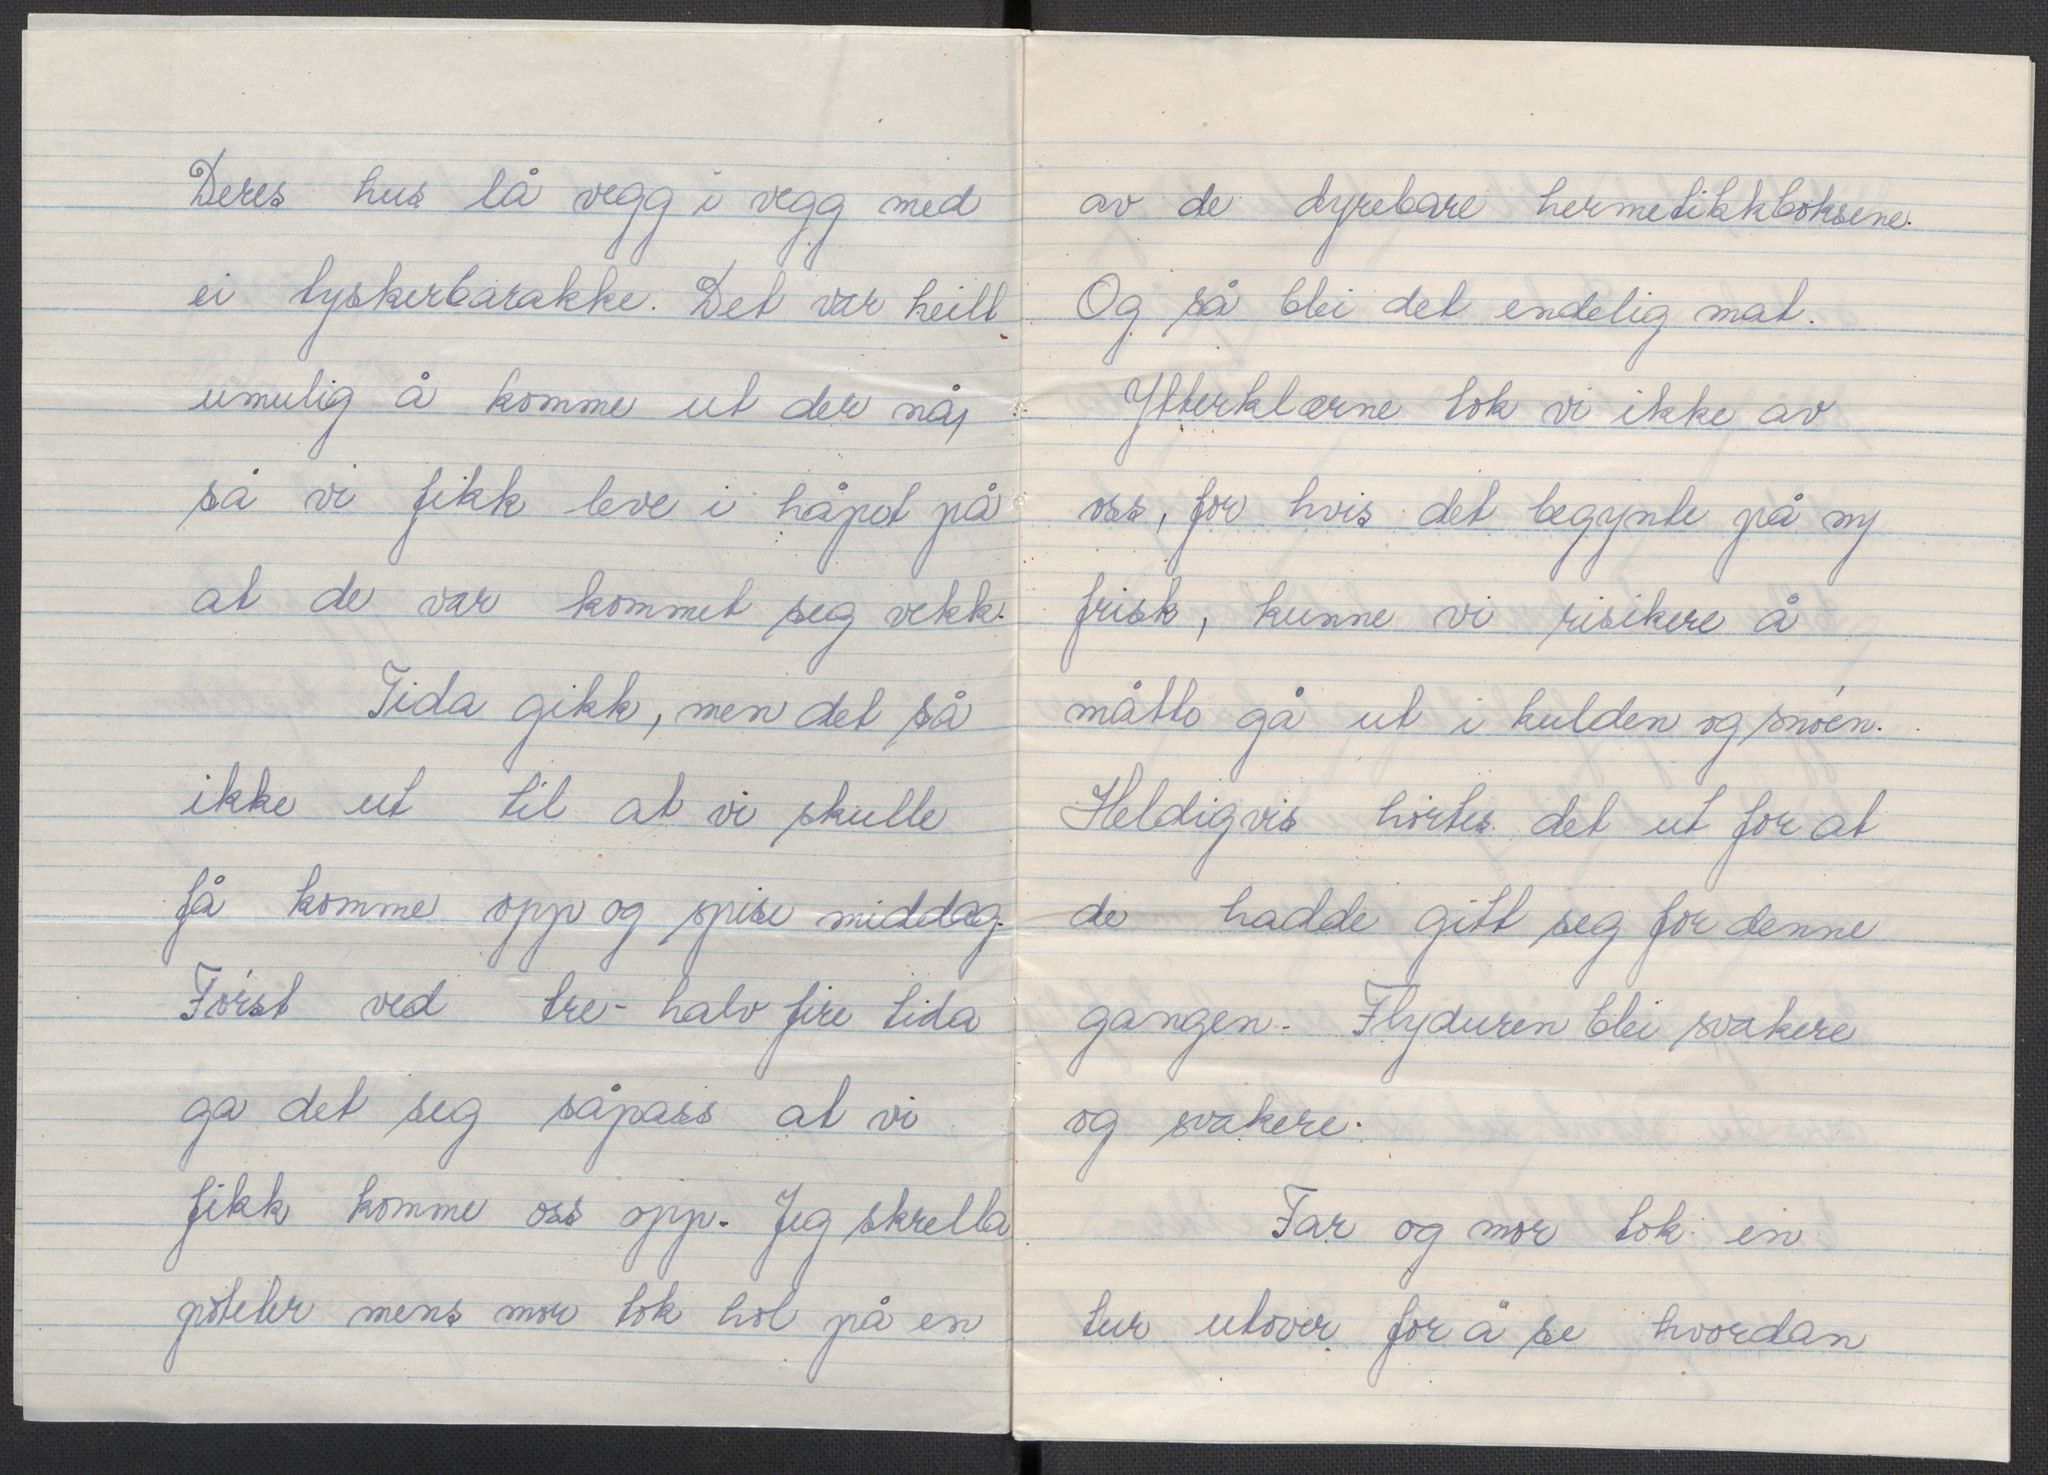 Deres hus lå vegg i vegg med
ei tyskerbarakke. Det var heilt
umulig å komme ut der nå,
så vi fikk leve i håpet på
at de var kommet seg vekk.
Tida gikk, men det så
ikke ut til at vi skulle
få komme opp og spise middag.
Først ved tre-halv fire tida
ga det seg såpass at vi
fikk komme oss opp. Jeg skrella
poteter mens mor tok hol på en
av de dyrebare hermetikkboksene.
Og så blei det endelig mat.
Ytterklærne tok vi ikke av
oss, for hvis det begynte på ny
frisk, kunne vi risikere å
måtte gå ut i kulden og snøen.
Heldigvis hørtes det ut for at
de hadde gitt seg for denne
gangen. Flyduren blei svakere
og svakere.
Far og mor tok en
tur utover for å se hvordan